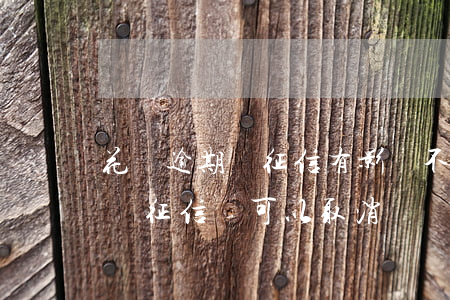 花 逾期 征信有影 不
征信 可以取消